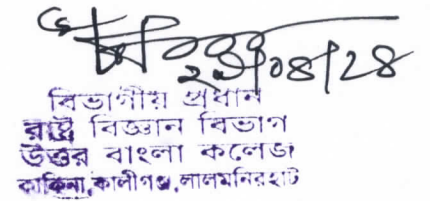 ২১/০৪/২৪
বিভাগীয় প্রধান
রাষ্ট্র বিজ্ঞান বিভাগ
উত্তর বাংলা কলেজ
কাকিনা, কালীগঞ্জ, লালমনিরহাট